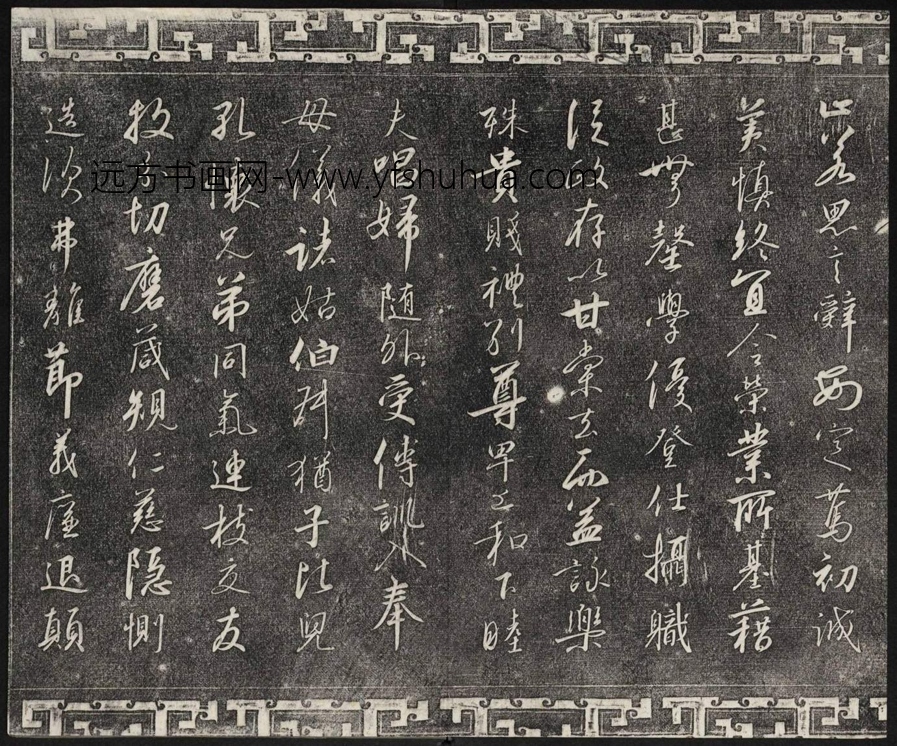 止若思言辭安定篤初誠
美慎終宜令榮業所基藉
甚無罄學優登仕攝職
從政存以甘棠去而益詠樂
殊貴賤禮別尊卑上和下睦
夫唱婦随外受傅訓入奉
母儀諸姑伯叔猶子比兒
孔懷兄弟同氣連枝交友
投分切磨箴規仁慈隐惻
造次弗離節義廉退顛
远方书画网-www.yfshuhua.com